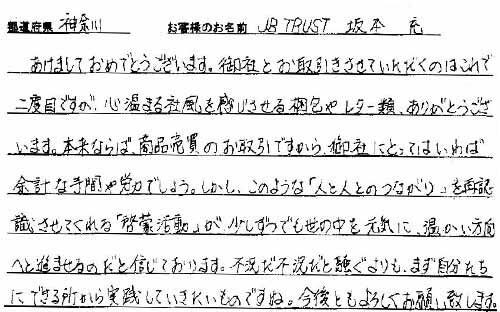 都道府県 神奈川 お客様のお名前 JB TRUST 坂本 充
あけましておめでとうございます。御社とお取引きさせていただくのはこれで
二度目ですが、心温まる社風を感じさせる梱包やレター類、ありがとうござ
います。本来ならば、商品売買のお取引ですから、御社にとってはいわば
余計な手間や労力でしょう。しかし、このような「人と人とのつながり」を再認
識させてくれる「啓蒙活動」が、少しずつでも世の中を元気に、温かい方向
へと進ませるのだと信じております。不況だ不況だと騒ぐよりも、まず自分たち
にできる所から実践していきたいものですね。今後ともよろしくお願い致します。